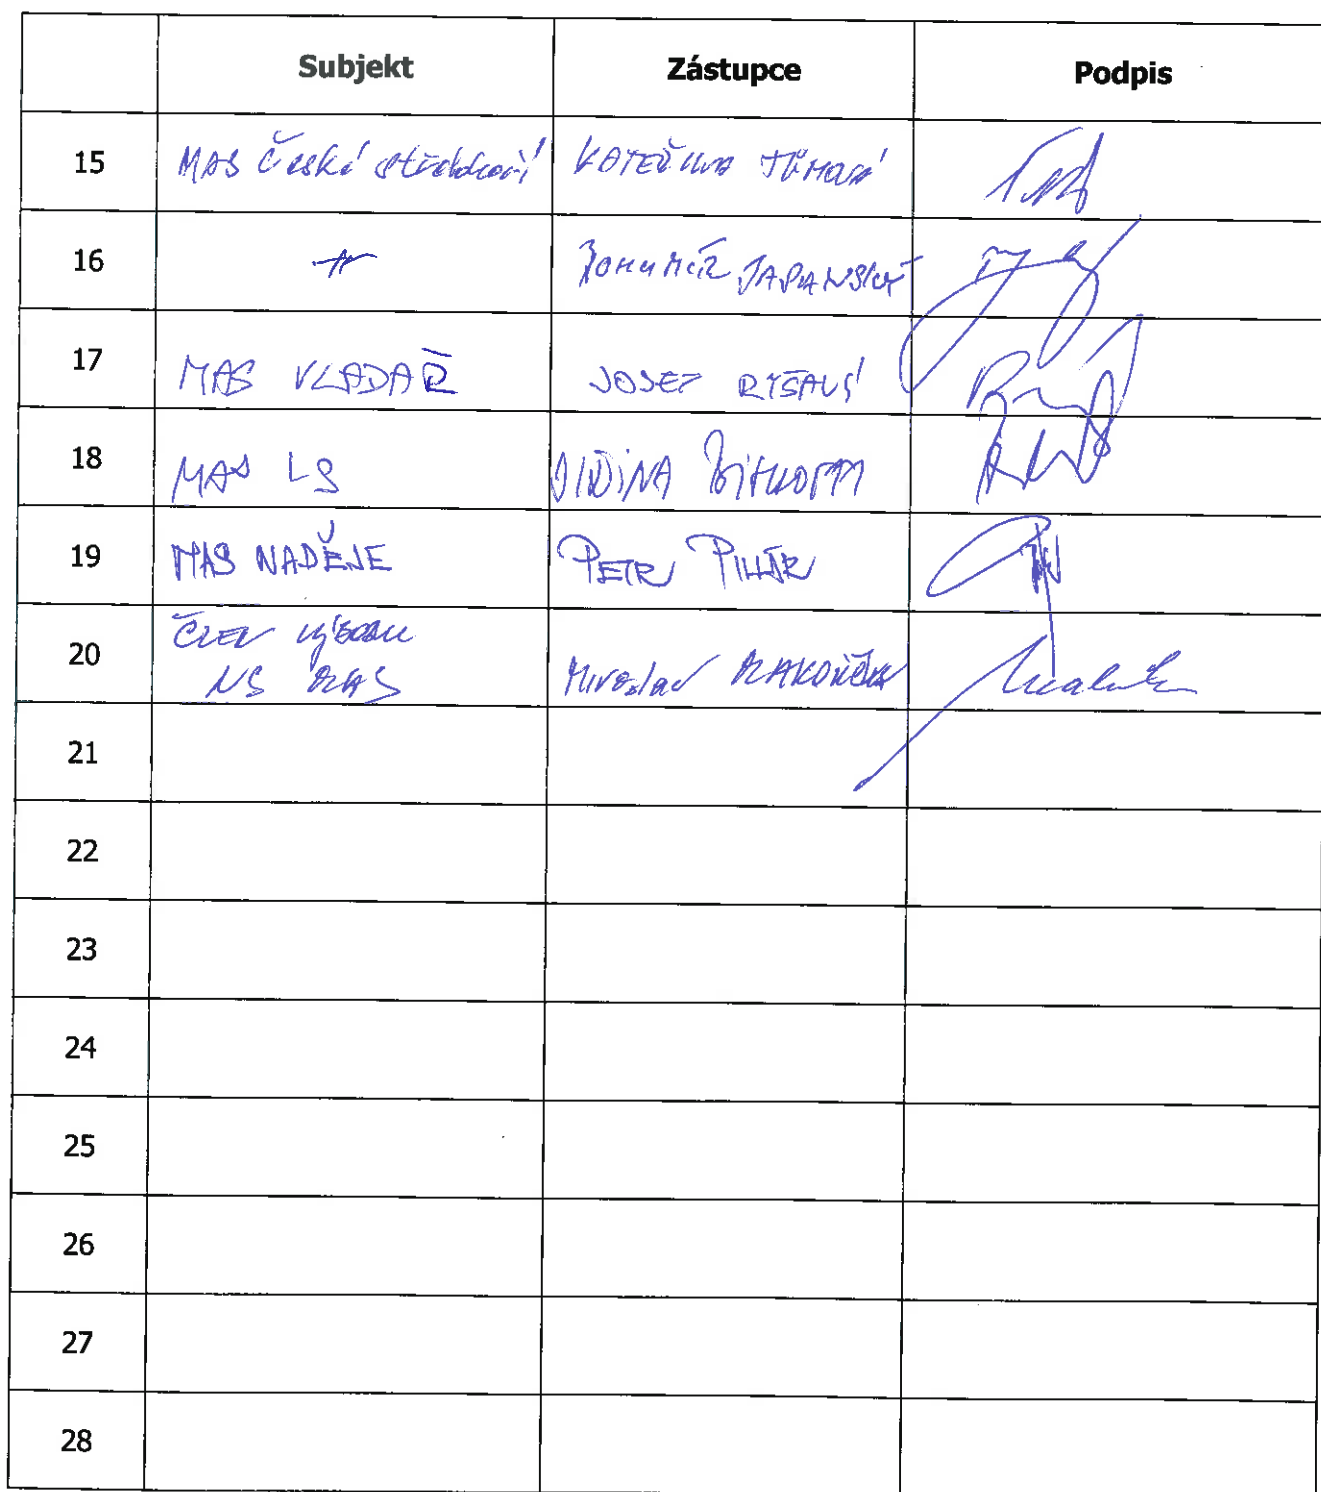 Subjekt Zástupce Podpis
15 MAS České středohoří KATEŘINA TŮMOVÁ
16 BOHUMÍR JAPANSKÝ
17 MAS VLADAŘ JOSEF RYŠAVÝ
18 MAS LS
19 MAS NADĚJE PETR PILLÁR
20 ČLEN VÝBORU
NS MAS Miroslav MAKOVIČKA
21
22
23
24
25
26
27
28